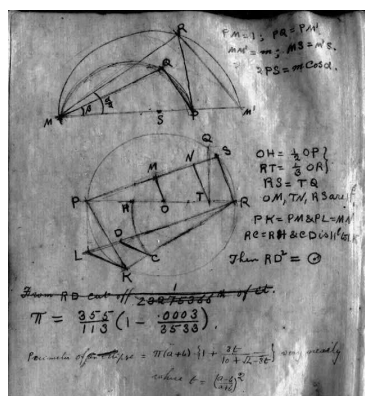 PM=1; PQ=PM'
MM'=m; MS=M'S.
2PS=m Cosα.
R
Q
M
β
α/2
S
P
M'
Q
S
N
M
P
H
O
T
R
D
L
C
K
OH = 1/2 OP}
RT = 1/3 OR}
RS = TQ
OM, TN, RS are
PK=PM & PL=MN
RC=RH & CD is
Then RD² = ⊙
From RD cut off
π = 355/113 (1 - .0003/3533).
Perimeter of an ellipse = π(a+b) {1 + 3t/(10+√4-3t)} very nearly
where t = (a-b/a+b)²